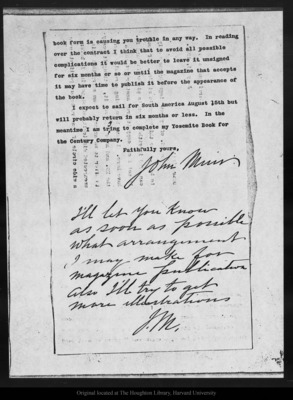 book form is causing you trouble in any way. In reading
over the contract I think that to avoid all possible
complications it would be better to leave it unsigned
for six months or so or until the magazine that accepts
it may have time to publish it before the appearance of
the book.
I expect to sail for South America August 15th but
will probably return in six months or less. In the
meantime I am trying to complete my Yosemite Book for
the Century Company.
Faithfully yours,
John Muir
I'll let you know
as soon as possible
what arrangement
I may make for
magazine publication
Also I'll try to get
more illustrations
J.M.
Original located at The Houghton Library, Harvard University